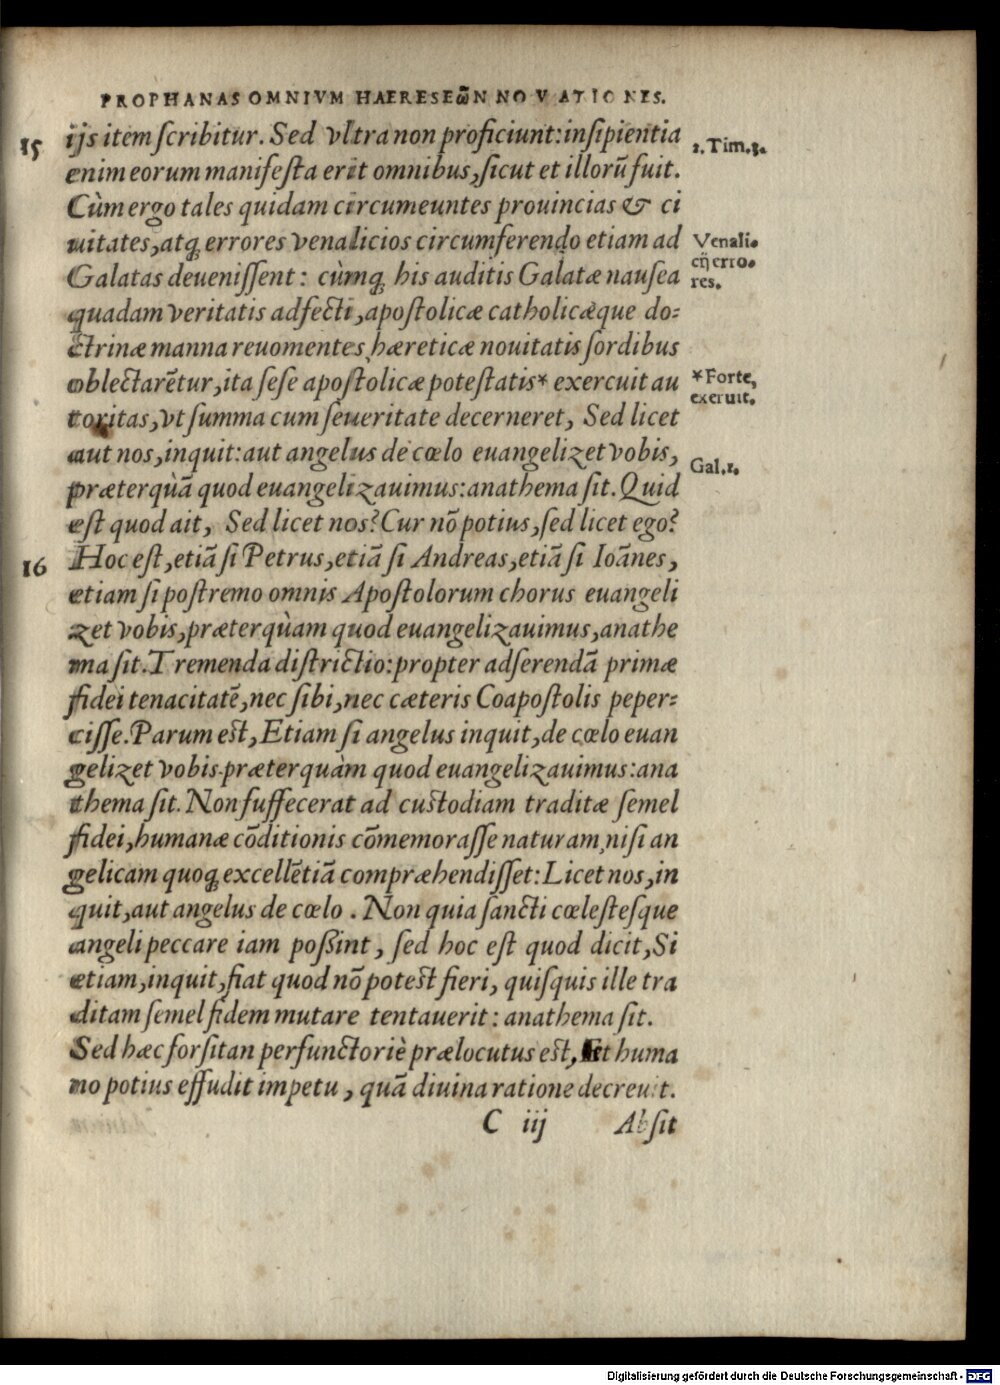 PROPHANAS OMNIVM HAERESEῶN NOVATIONES.
15 ijs item ſcribitur. Sed vltra non proficiunt: inſipientia 2.Tim.3.
enim eorum manifeſta erit omnibus, ſicut et illorũ fuit.
Cùm ergo tales quidam circumeuntes prouincias & ci
uitates, atq; errores venalicios circumferendo etiam ad Venali-
Galatas deueniſſent: cùmq; his auditis Galatæ nauſea cij erro-
res.
quadam veritatis adfecti, apoſtolicæ catholicæque do-
ctrinæ manna reuomentes hæreticæ nouitatis ſordibus
oblectarẽtur, ita ſeſe apoſtolicæ poteſtatis* exercuit au *Forte,
exeruit.
toritas, vt ſumma cum ſeueritate decerneret, Sed licet
aut nos, inquit: aut angelus de cœlo euangelizet vobis, Gal.1.
præterquã quod euangelizauimus: anathema ſit. Quid
eſt quod ait, Sed licet nos? Cur nõ potius, ſed licet ego?
16 Hoc eſt, etiã ſi Petrus, etiã ſi Andreas, etiã ſi Ioãnes,
etiam ſi poſtremo omnis Apoſtolorum chorus euangeli
zet vobis, præterquàm quod euangelizauimus, anathe
ma ſit. Tremenda diſtrictio: propter adſerendã primæ
fidei tenacitatẽ, nec ſibi, nec cæteris Coapoſtolis peper-
ciſſe. Parum eſt, Etiam ſi angelus inquit, de cœlo euan
gelizet vobis præterquàm quod euangelizauimus: ana
thema ſit. Non ſuffecerat ad cuſtodiam traditæ ſemel
fidei, humanæ cõditionis cõmemoraſſe naturam niſi an
gelicam quoq; excellẽtiã compræhendiſſet: Licet nos, in
quit, aut angelus de cœlo. Non quia ſancti cœleſteſque
angeli peccare iam poßint, ſed hoc eſt quod dicit, Si
etiam, inquit, fiat quod nõ poteſt fieri, quiſquis ille tra
ditam ſemel fidem mutare tentauerit: anathema ſit.
Sed hæc forſitan perfunctoriè prælocutus eſt, Et huma
no potius effudit impetu, quã diuina ratione decreuit.
C iij Abſit
Digitalisierung gefördert durch die Deutsche Forschungsgemeinschaft - DFG